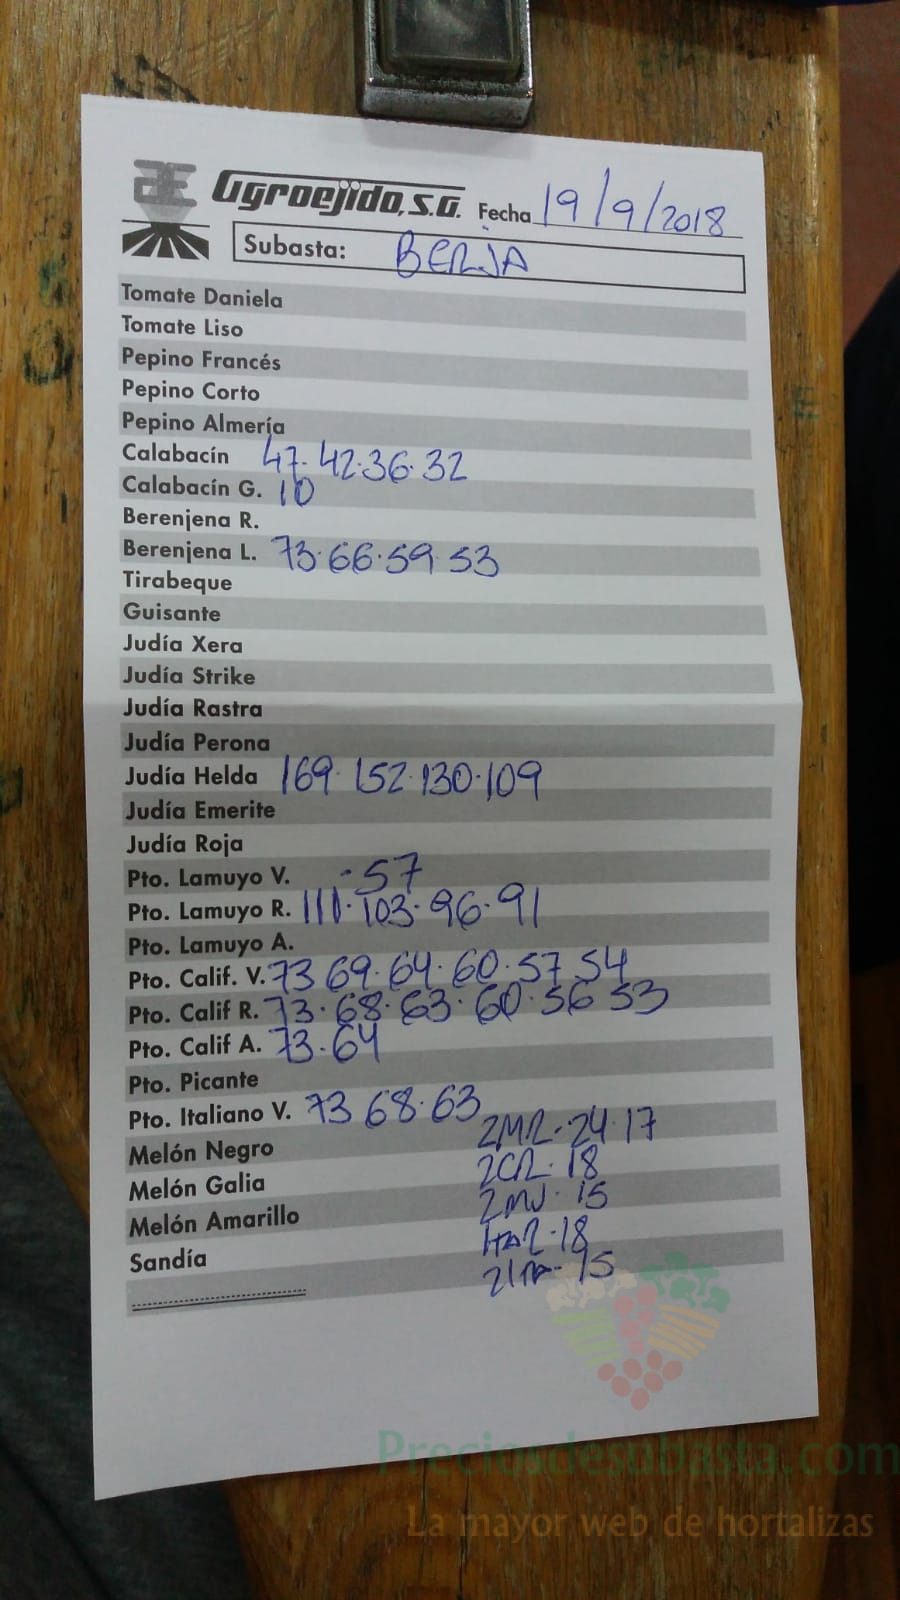 Agroejido, S.A. Fecha 19/9/2018
Subasta: BERJA
Tomate Daniela
Tomate Liso
Pepino Francés
Pepino Corto
Pepino Almería
Calabacín 47. 42.36.32
Calabacín G. 10
Berenjena R.
Berenjena L. 73.66.59.53
Tirabeque
Guisante
Judía Xera
Judía Strike
Judía Rastra
Judía Perona
Judía Helda 169.152.130.109
Judía Emerite
Judía Roja
Pto. Lamuyo V. .57
Pto. Lamuyo R. 111.103.96.91
Pto. Lamuyo A.
Pto. Calif. V. 73 69.64.60.57 54
Pto. Calif R. 73.68.63.60.56 53
Pto. Calif A. 73.64
Pto. Picante
Pto. Italiano V. 73 68.63
2MR. 24.17
Melón Negro
2CR. 18
Melón Galia
2MV. 15
Melón Amarillo
18
Sandía
15
Preciosdesubasta.com
La mayor web de hortalizas